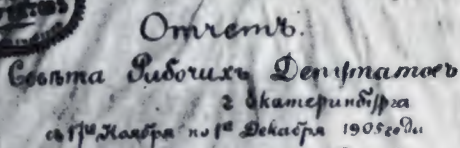 Отчетъ.
Совѣта Рабочихъ Депутатовъ
г Екатеринбурга
съ 1го Ноября по 1е Декабря 1905 года